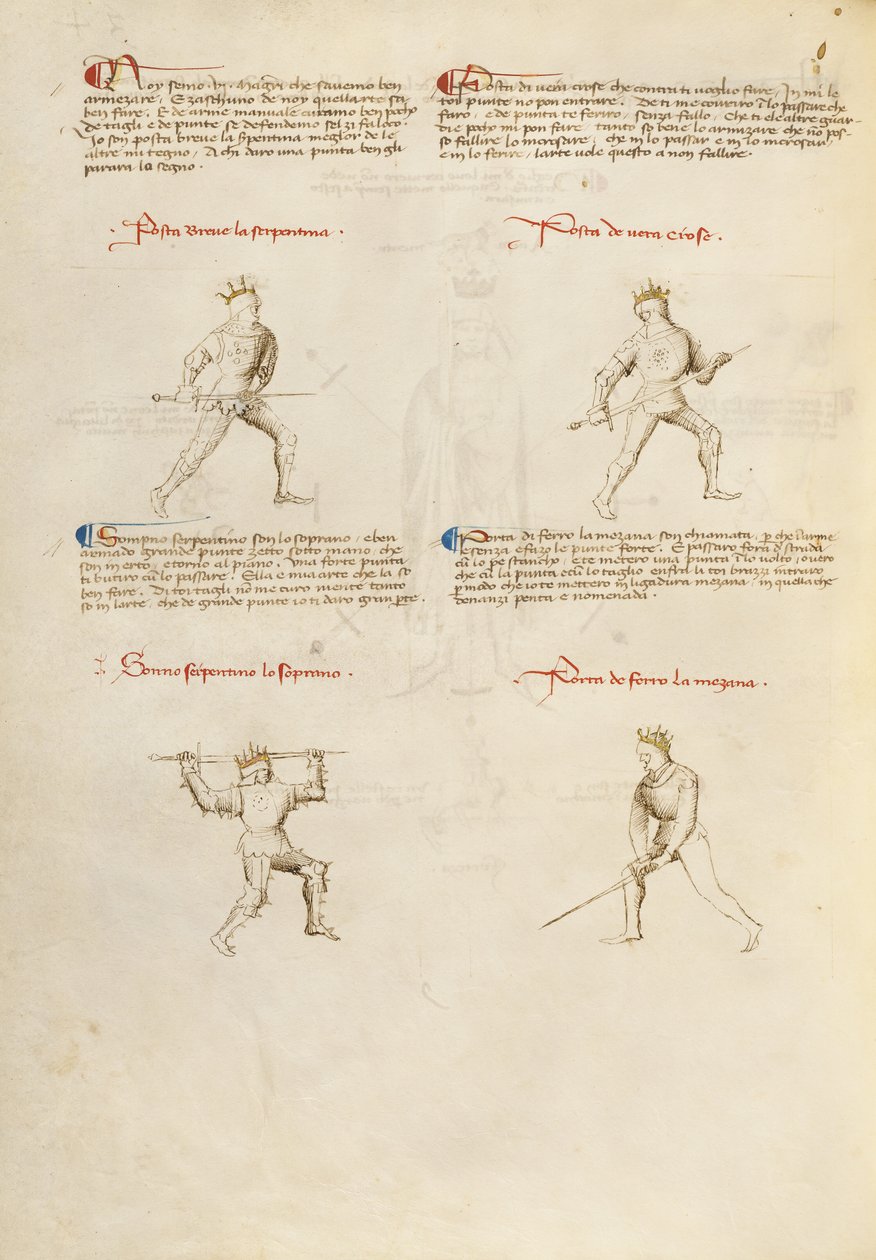 Noy semo .vj. Magistri che savemo ben
armezare, E zaschuno de noy quellarte sa
ben fare. E de arme manuale curamo ben pocho
de tagli e de punte se defendemo sel zi fa loco.
Io son posta breve la serpentina meglor de le
altre mi tegno, A chi daro una punta ben gli
parara lo segno.
Posta Breve la serpentina.
Posta di vera crose che contra ti voglio fare, In mi le
toy punte non pon entrare. De ti me covriro in lo passare che
faro, e de punta te feriro, senza fallo, Che ti e le altre guar-
die pocho mi pon fare tanto so bene lo armizare che non pos-
so fallire lo incrosare, che in lo passar e in lo incrosar,
e in lo ferire, larte vole questo a non fallire.
Posta de vera Crose.
Sompno serpentino son lo soprano, e ben
armado grande punte zetto sotto mano, che
son in erto, e torno al piano. Una forte punta
ti butiro cum lo passare. Ella e mia arte che la so
ben fare. Di toi tagli no me curo niente tanto
so in larte, che de grande punte io ti daro gran parte.
Sonno serpentino lo soprano.
Porta di ferro la mezana son chiamata, per che l'arme
e senza e fazo le punte forte. E passaro fora d'strada
cum lo pe stancho, E te metero una punta in lo volto, overo
che cum la punta e cum lo taglio enfra li toi brazzi intraro
per modo che io te mettero in ligadura mezana, in quella che
denanzi penta e nomenada.
Porta de ferro la mezana.